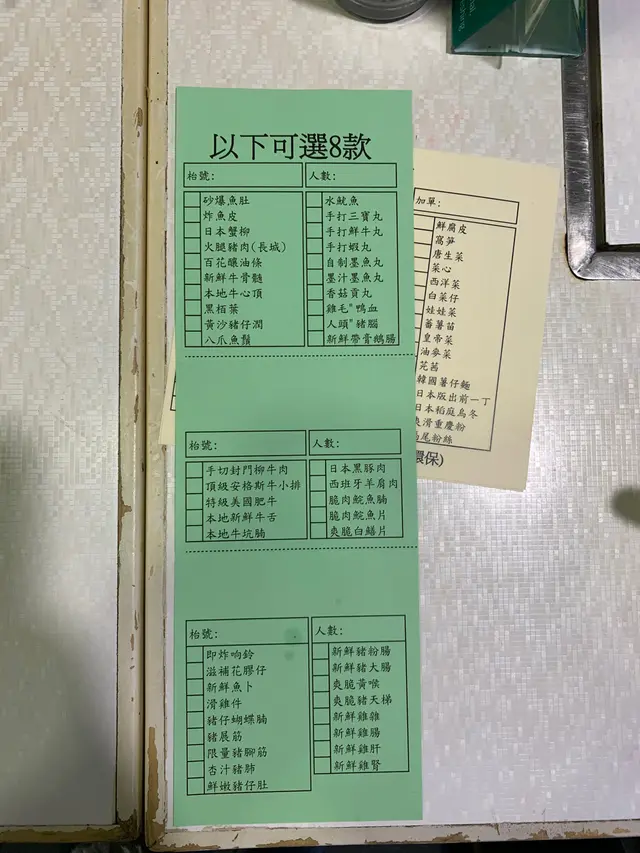 以下可選8款
枱號:
人數:
砂爆魚肚
炸魚皮
日本蟹柳
火腿豬肉(長城)
百花釀油條
新鮮牛骨髓
本地牛心頂
黑栢葉
黃沙豬仔潤
八爪魚鬚
水魷魚
手打三寶丸
手打鮮牛丸
手打蝦丸
自制墨魚丸
墨汁墨魚丸
香菇貢丸
雞毛"鴨血
人頭"豬腦
新鮮帶膏鵝腸
枱號:
人數:
手切封門柳牛肉
頂級安格斯牛小排
特級美國肥牛
本地新鮮牛舌
本地牛坑腩
日本黑豚肉
西班牙羊肩肉
脆肉鯇魚腩
脆肉鯇魚片
爽脆白鱔片
枱號:
人數:
即炸响鈴
滋補花膠仔
新鮮魚卜
滑雞件
豬仔蝴蝶腩
豬展筋
限量豬腳筋
杏汁豬肺
鮮嫩豬仔肚
新鮮豬粉腸
新鮮豬大腸
爽脆黃喉
爽脆豬天梯
新鮮雞雜
新鮮雞腸
新鮮雞肝
新鮮雞腎
加單:
鮮腐皮
窩笋
唐生菜
菜心
西洋菜
白菜仔
娃娃菜
蕃薯苗
皇帝菜
油麥菜
芫茜
韓國薯仔麵
日本版出前一丁
日本稻庭烏冬
爽滑重慶粉
尾粉絲
環保)